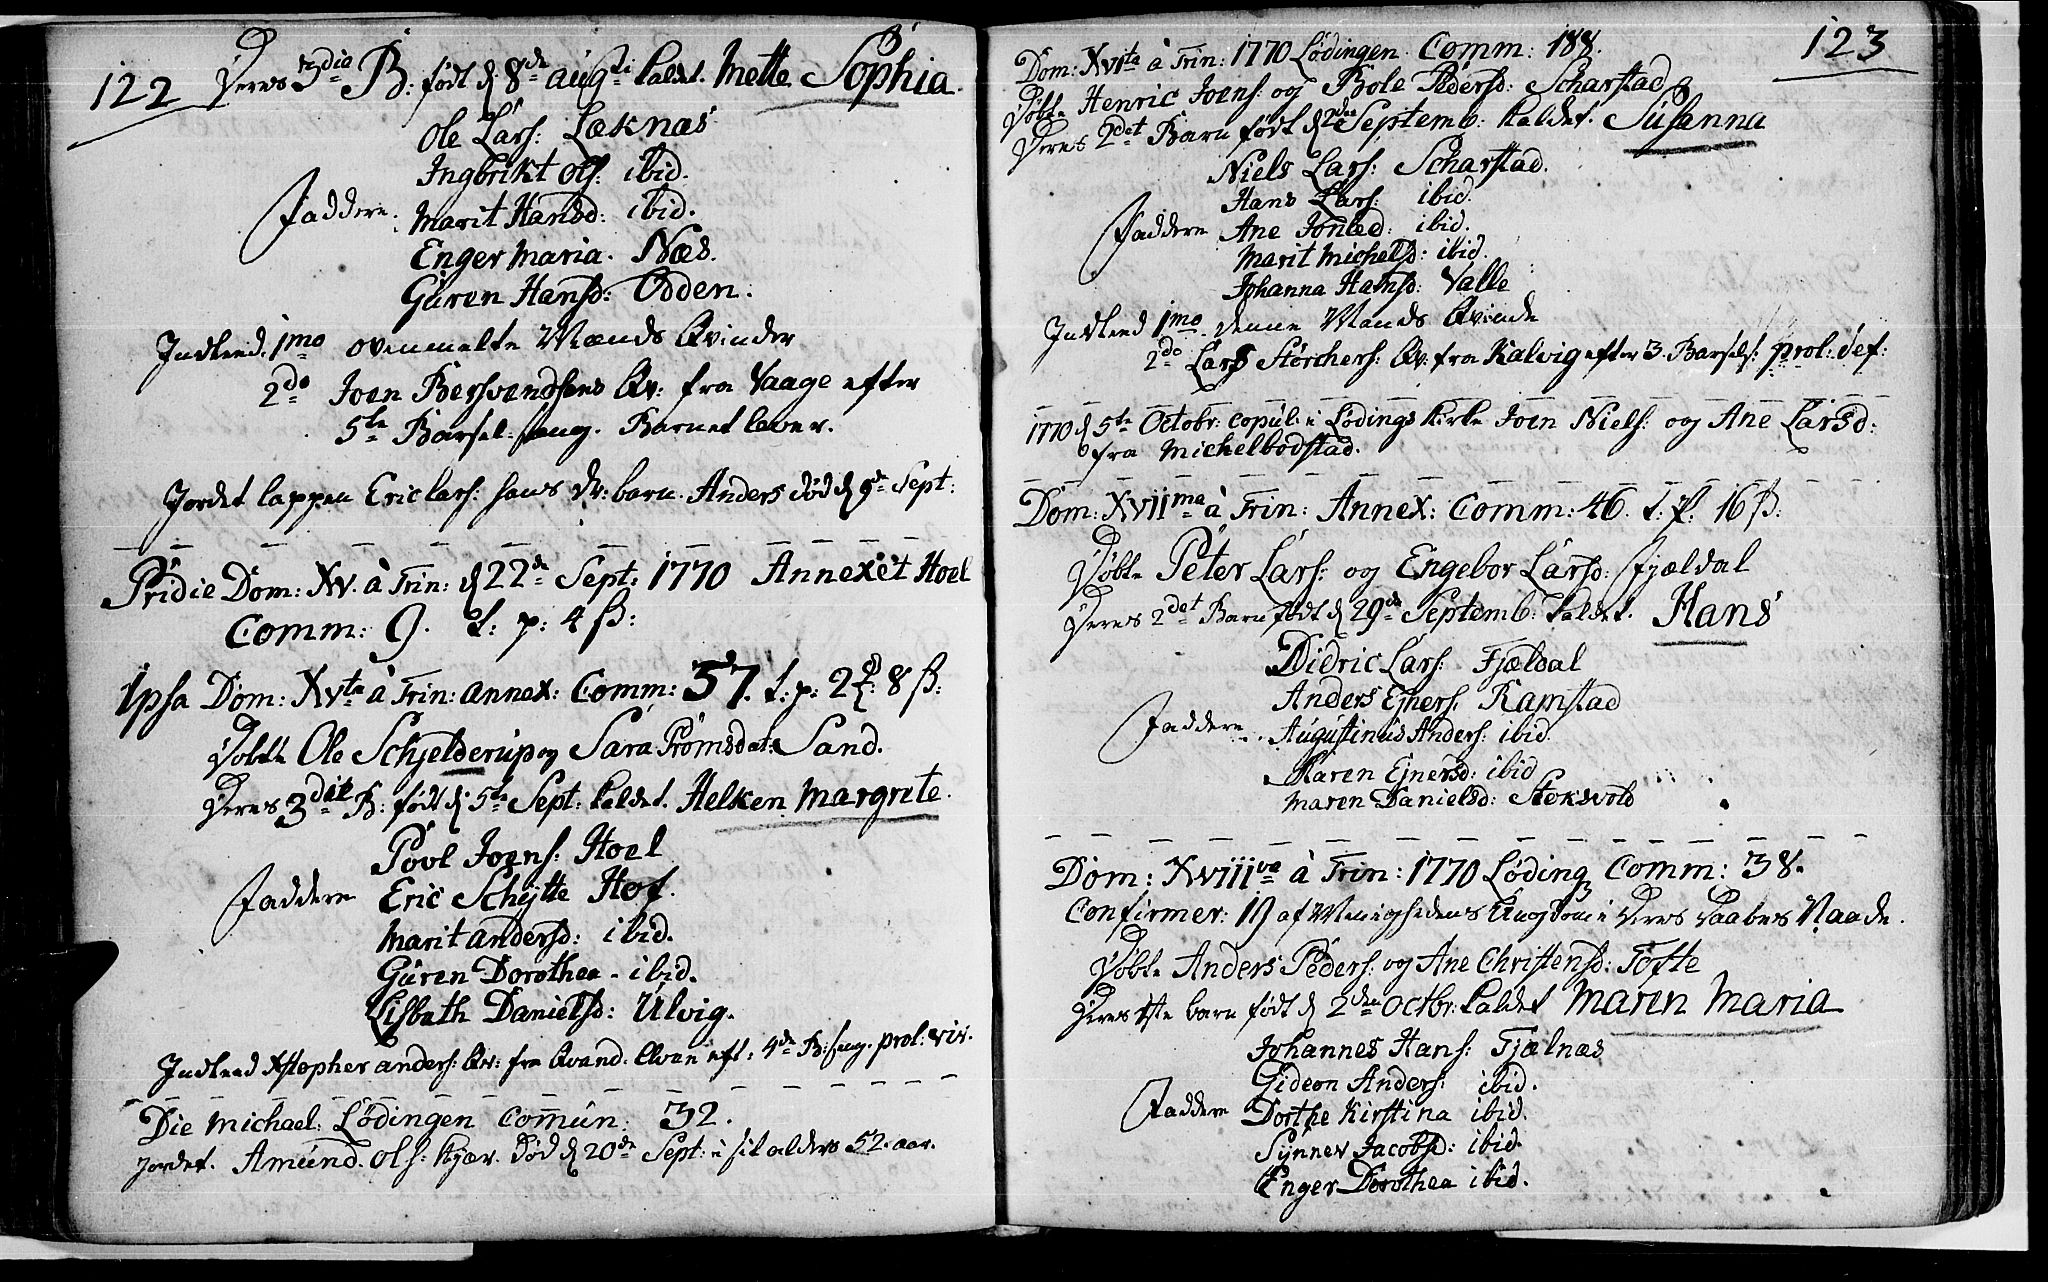 122
Deres 3die B: født d 8de augti kaldet Mette Sophia.
Ole Lars: Læknæs
Ingbrikt Ols: ibid.
Faddere. Marit Hansd: ibid.
Enger Maria. Næs.
Guren Hansd: Odden.
Indleed. 1mo ovenmelte Mands Qvinder
2do Joen Bersvendsens Qv: fra Vaage efter
5te Barsel-seng. Barnet lever.
Jordet lappen Eric lars: hans dr: barn. Anders død d 9de Sept:
Pridie Dom: XV. à Trin: d 22de Sept: 1770 Annexet Hoel
Comm: 9. t: p: 4 ß:
Ipsa Dom: XVta à Trin: annex: Comm: 37. t: p: 2 8 ß:
Døbte Ole Schjelderup og Sara Tromsdat: Sand.
Deres 3die B: født d 5te Sept: kaldet. Helken Margrete.
Povl Joens: Hoel
Faddere Eric Schytte Hof.
Marit Andersd: ibid.
Guren Dorothea - ibid.
Lisbeth Danielsd: Ulvig.
Indleed Xstopher anders: Qv: fra Qvand. Elven eft: 4de B:seng. prol: viv.
Die Michael: Lødingen Comun: 32.
Jordet. Amund. Ols: Kjær. Død d 20de Sept: i sit alders 52. aar.
123
Dom: XVIta à Trin: 1770 Lødingen. Comm: 188.
Døbte Henric Joens: og Bole Pedersd: Scharstad
Deres 2det Barn født d 2den Septemb: kaldet. Susanna
Niels Lars: Scharstad.
Hans Lars: ibid.
Faddere Ane Jonled: ibid.
Marit Michelsd: ibid.
Johanna Hansd: Valle
Indleed 1mo denne Mands Qvinde
2do Lars Størchers: Qv. fra Kalvig efter 3. Barsels: prol: def:
1770 d 5te Octobr: copul: i Lødings Kirke Joen Niels: og Ane Larsd:
fra Michelbodstad.
Dom: XVIIma à Trin: Annex: Comm: 46. t: p: 16 ß:
Døbte Peter Lars: og Engebor Larsd: Fjældal
Deres 2det Barn født d 29de Septemb: kaldet. Hans
Didric Lars: Fjældal
Anders Ejners. Ramstad
Faddere Augustinus Anders: ibid.
Karen Ejnersd: ibid
Maren Danielsd: Stoksvold
Dom: XVIIIva à Trin: 1770 Løding Comm: 38.
Confirmer: 19 af Menighedens Ungdom i Deres Daabes Naade.
Døbte Anders Peders: og Ane Christensd: Tofte
Deres 1ste barn født d 2den Octbr: kaldet Maren Maria
Johannes Hans: Fjælnæs
Gideon Anders: ibid.
Faddere Dorthe Kirstina ibid.
Synnev Jacobsd: ibid.
Enger Dorothea ibid.